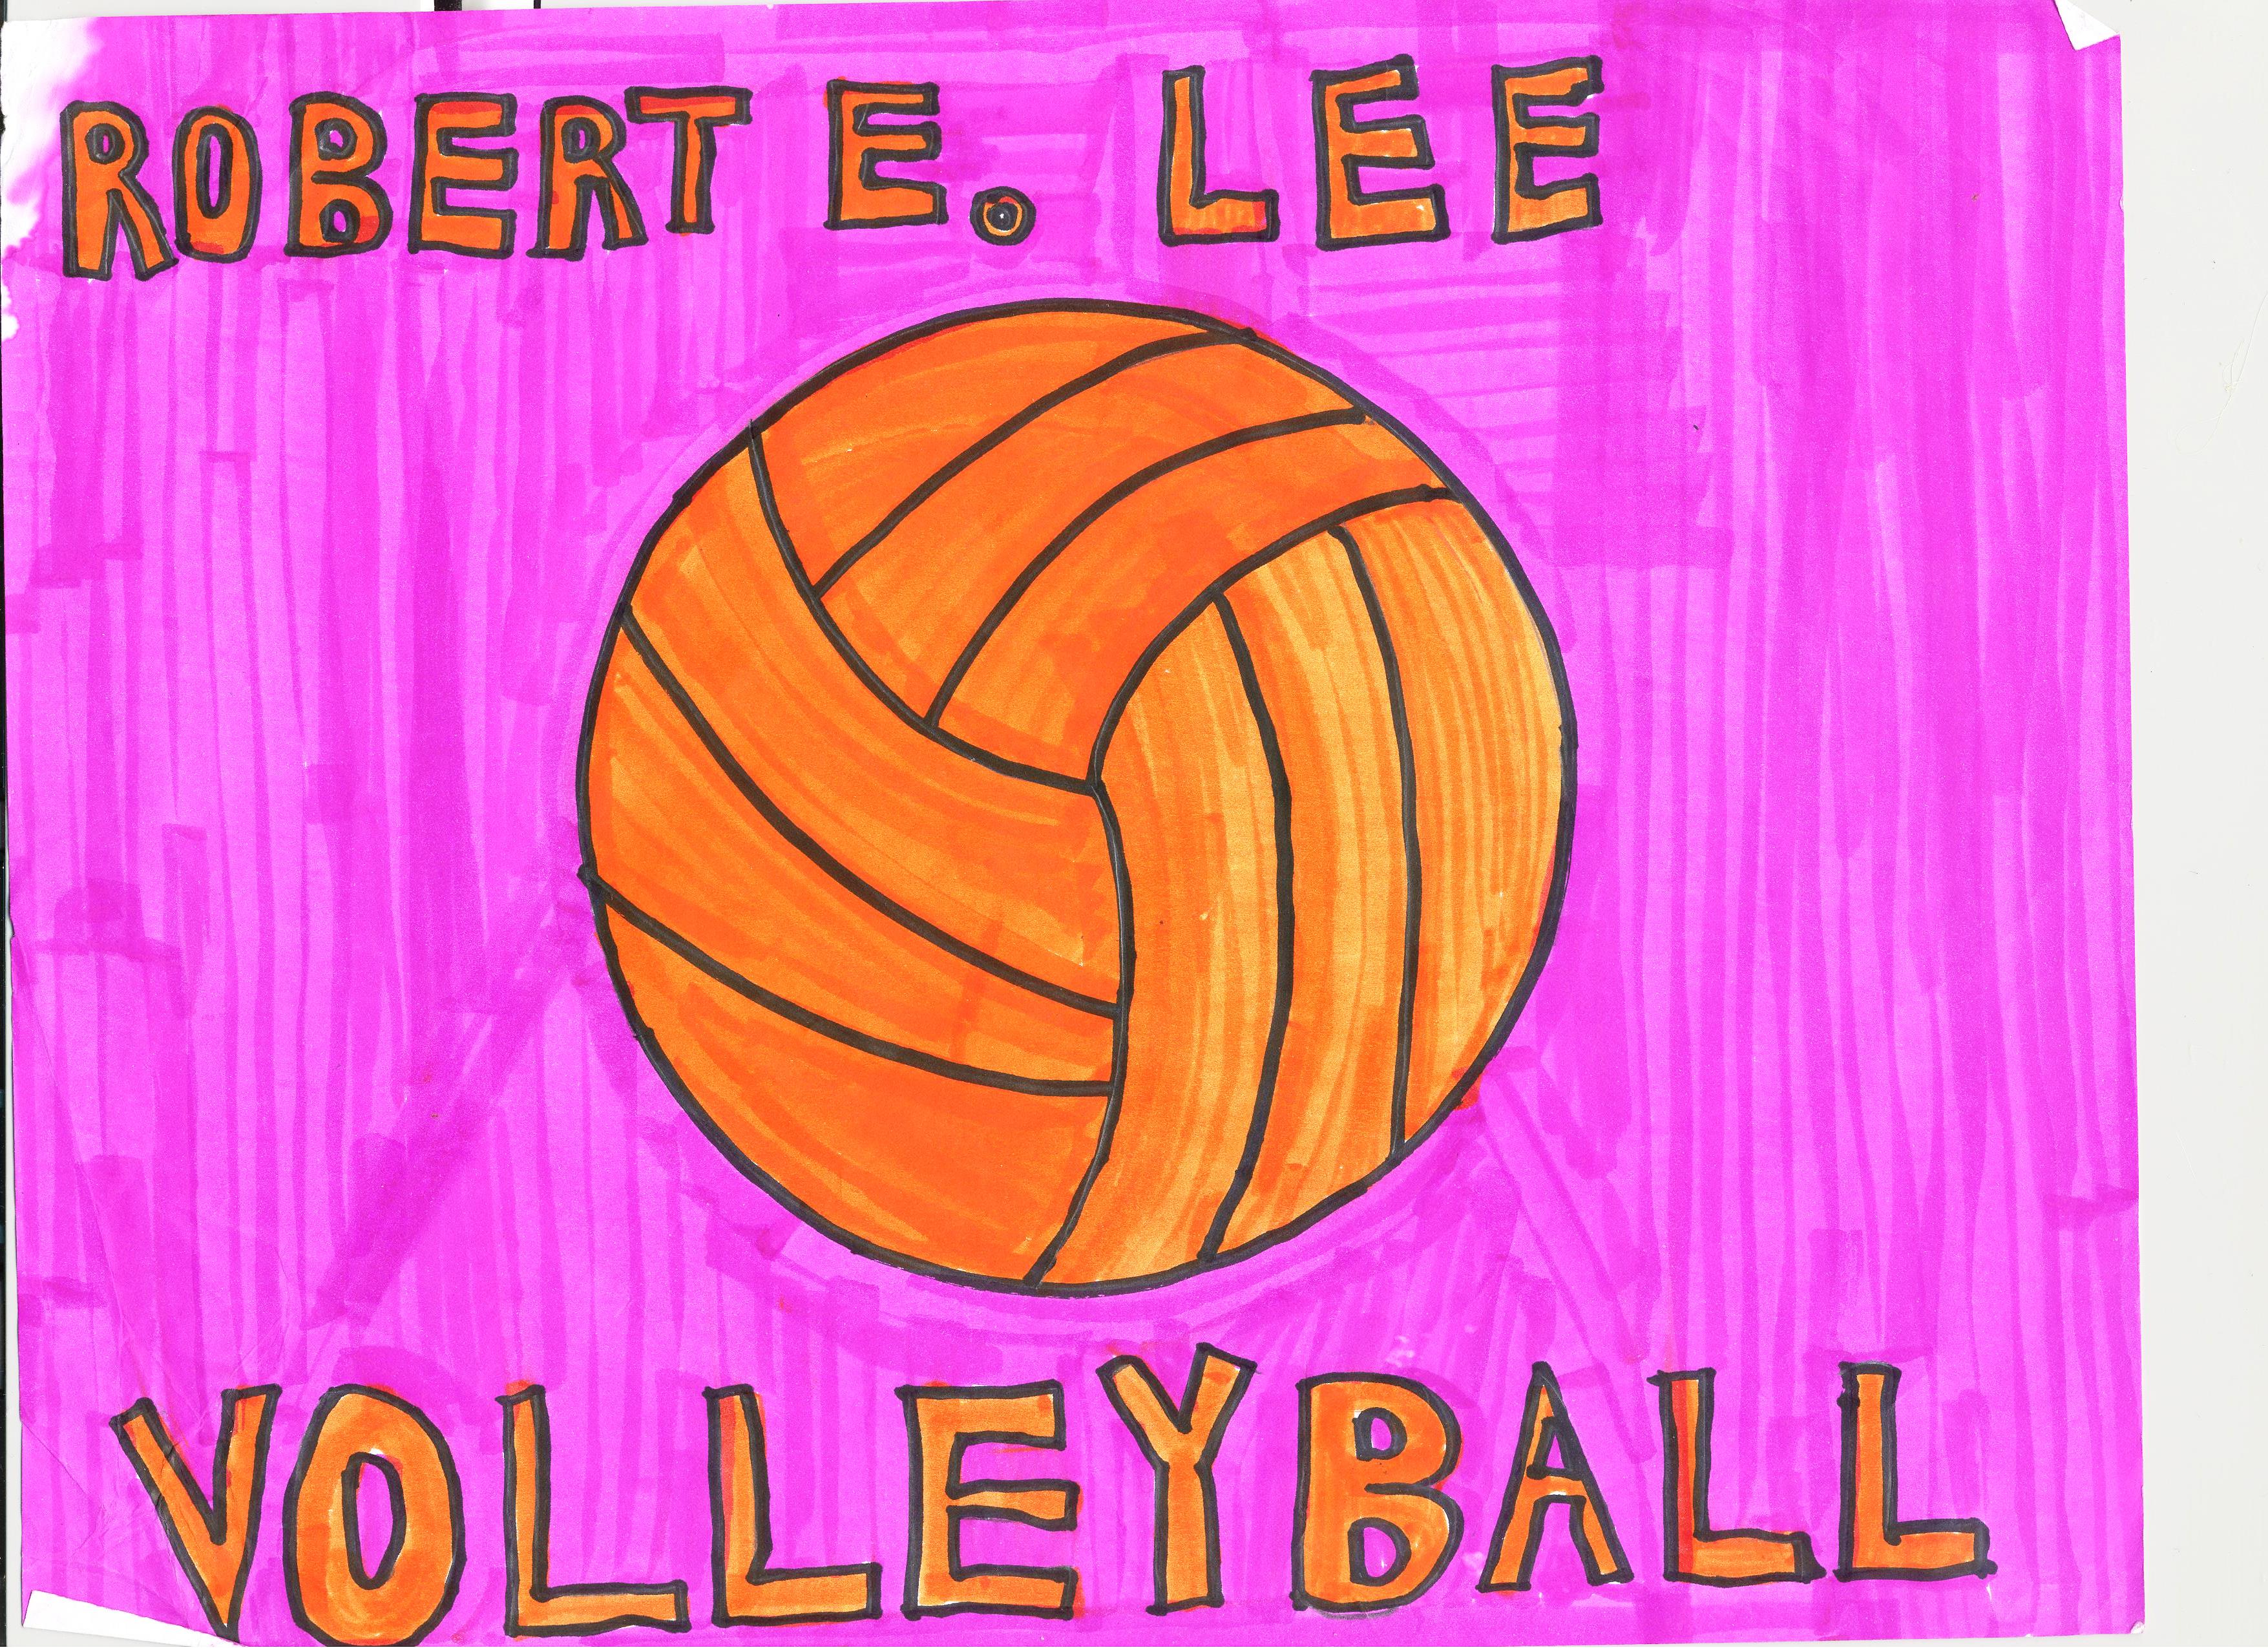 ROBERT E. LEE
VOLLEYBALL